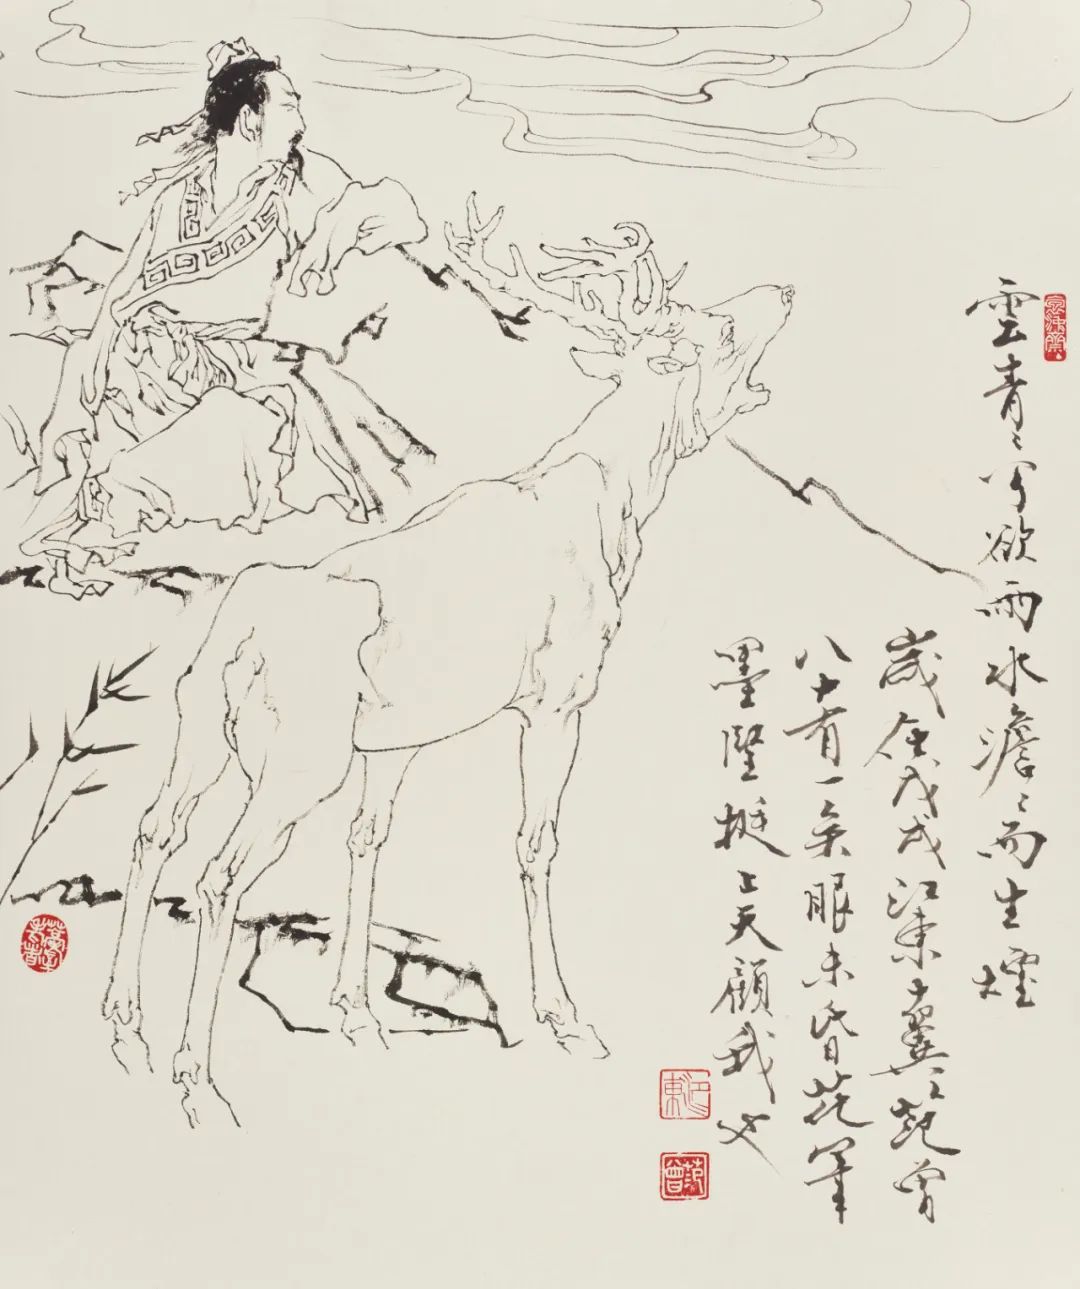 雲青〻兮欲雨水澹〻而生煙
歲在戊戌江東十翼范曾
八十有一矣眼未昏花筆
墨堅挺上天顧我也
江東
范曾